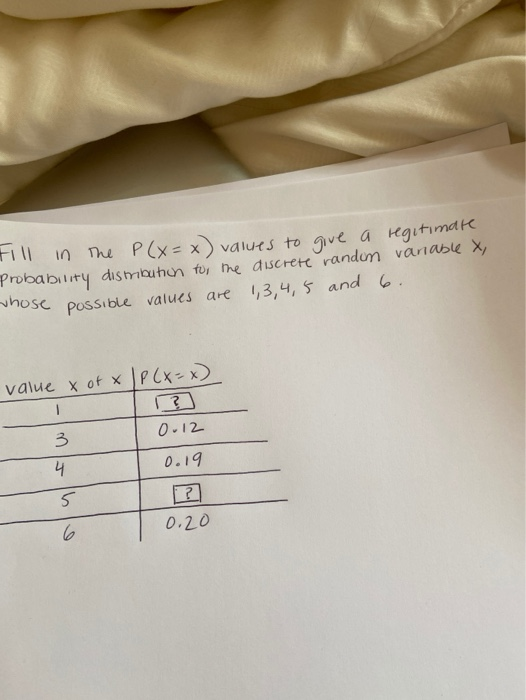 Fill in the P(x = x) values to give a legitimate
Probability distribution for the discrete random variable X,
whose possible values are 1,3,4,5 and 6.
value x of x P(x=x)
1 ?
3 0.12
4 0.19
5 ?
6 0.20